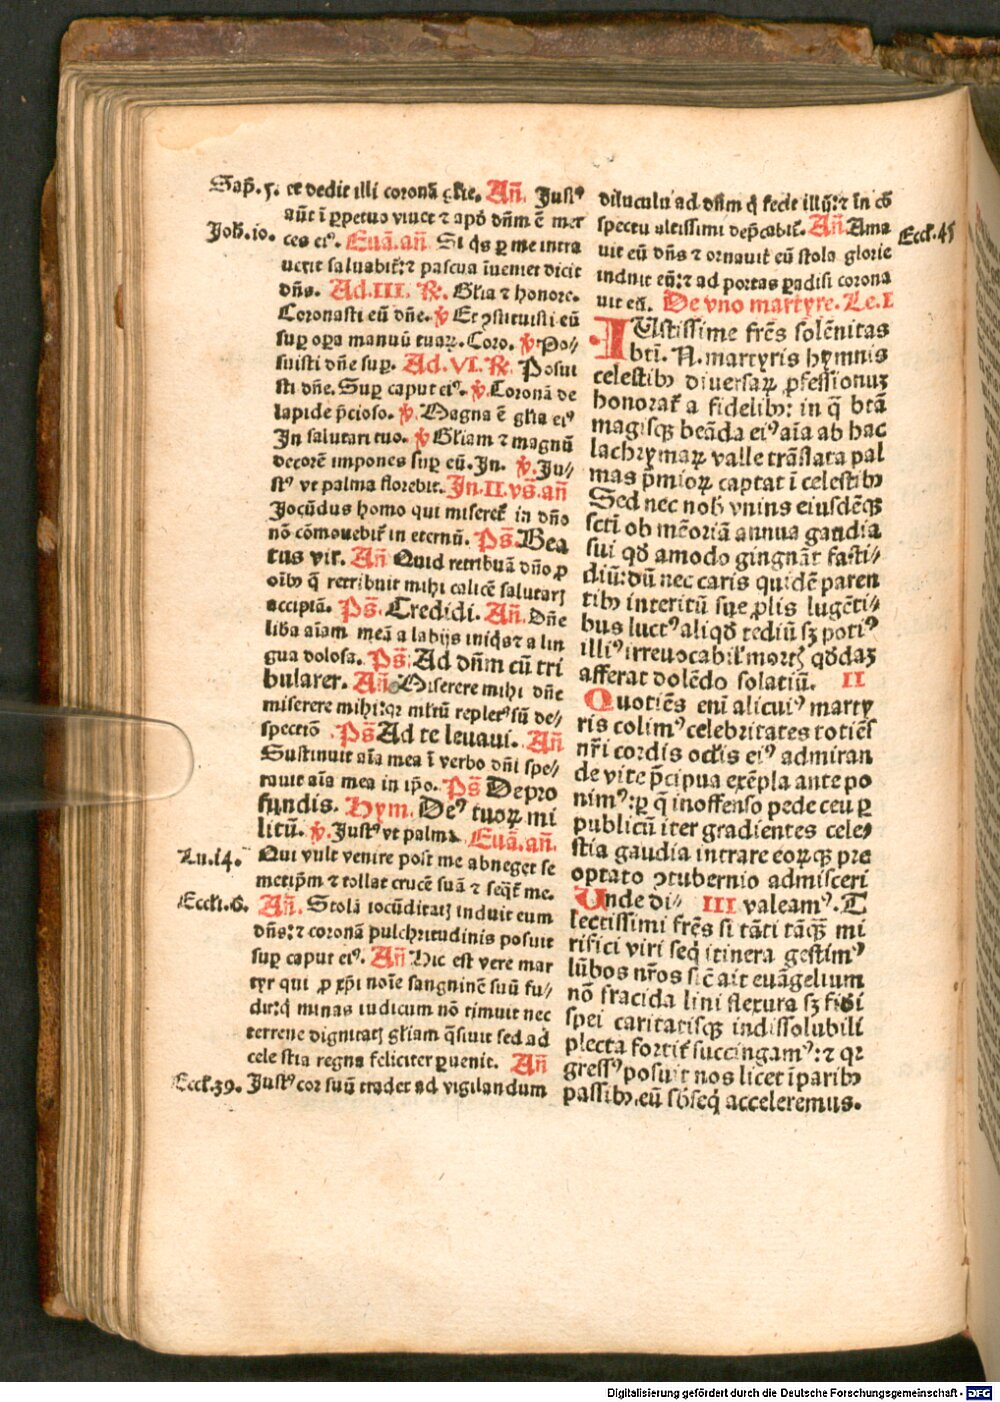 Sap̄. 5. et dedit illi coronā glīe. Añ. Justꝰ
aūt ī ꝑpetuū viuet ⁊ apđ dñm ē mer
Joh. 10. ces eiꝰ. Euā. añ. Si q̇s ꝑ me intra
uerit saluabit᷑: ⁊ pascua īueniet dicit
dñs. Ad. III. ℞. Glīa ⁊ honore.
Coronasti eū dñe. ℣ Et ꝯstituisti eū
suꝑ oꝑa manuū tuaꝝ. Coro. ℣ Po⸗
suisti dñe suꝑ. Ad. VI. ℞. Posui
sti dñe. Suꝑ caput eiꝰ. ℣. Coronā de
lapide p̄cioso. ℣. Magna ē glīa eiꝰ
In salutari tuo. ℣ Glīam ⁊ magnū
decorē impones suꝑ eū. In. ℣. Ju⸗
stꝰ vt palma florebit. In. II. vs̄. añ
Jocūdus homo qui miseret᷑ in dño
nō cōmouebit᷑ in eternū. Ps̄. Bea
tus vir. Añ Quid retribuā dño ꝓ
oīb̄ q̄ retribuit mihi calicē salutarꝭ
accipiā. Ps̄. Credidi. Añ. Dñe
liba aīam meā a labijs iniq̇s ⁊ a lin
gua dolosa. Ps̄: Ad dñm cū tri
bularer. Añ. Miserere mihi dñe
miserere mihi: qꝛ ml̄tū repletꝰ sū de⸗
spectiō. Ps̄ Ad te leuaui. Añ
Sustinuit aīa mea ī verbo dñi spe⸗
rauit aīa mea in ip̄o. Ps̄ De pro
fundis. Hym. Deꝰ tuoꝝ mi
litū. ℣. Justꝰ vt palma. Euā. añ.
Lu. 14. Qui vult venire post me abneget se
metip̄m ⁊ tollat crucē suā ⁊ seq̄t᷑ me.
Eccli. 6. Añ. Stolā iocūditatꝭ induit eum
dñs: ⁊ coronā pulchritudinis posuit
suꝑ caput eiꝰ. Añ Hic est vere mar
tyr qui ꝓ xp̄i noīe sanguinē suū fu⸗
dit: q̇ minas iudicum nō timuit nec
terrene dignitatꝭ glīam q̄siuit sed ad
cele stia regna feliciter ꝑuenit. Añ
Eccl̄. 39. Justꝰ cor suū tradet ad vigilandum
diluculu ad dñm q̇ fecit illū: ⁊ in cō
spectu altissimi dep̄cabit᷑. Añ. Ama Eccl̄. 45
uit eū dñs ⁊ ornauit eū stola glorie
induit eū: ⁊ ad portas ꝑadisi corona
uit eū. De vno martyre. Le. I
IUstissime fr̄es solēnitas
bti. N. martyris hymnis
celestib᷒ diuersaꝝ ꝓfessionuꝫ
honorat᷑ a fidelib᷒: in q̄ btā
magisqꝫ beāda eiꝰ aīa ab hac
lachrymaꝝ valle trāslata pal
mas p̄mioꝝ captat ī celestib᷒
Sed nec nob᷒ vnius eiusdēqꝫ
scti ob mēoriā annua gaudia
sui qđ amodo gingnāt fasti⸗
diū: dū nec caris quidē paren
tib᷒ interitū sue ꝓlis lugēti⸗
bus luctꝰ aliqđ tediū sꝫ potiꝰ
illiꝰ irreuocabil᷑ mortꝭ qđdaꝫ
afferat dolēdo solatiū. II
Quotiēs eni alicuiꝰ marty
ris colimꝰ celebritates totiēs
nr̄i cordis oc̄lis eiꝰ admiran
de vite p̄cipua exēpla ante po
nimꝰ: ꝑ q̄ inoffenso pede ceu ꝑ
publicū iter gradientes cele⸗
stia gaudia intrare eorꝫqꝫ pre
optato ꝯtubernio admisceri
Unde di⸗ III valeamꝰ. T
lectissimi fr̄es si tāti tāqꝫ mi
rifici viri seq̇ itinera gestimꝰ
lūbos nr̄os sīc ait euāgelium
nō fracida lini flexura sꝫ fidi
spei caritatisqꝫ indissolubili
plecta fortit᷑ succingamꝰ: ⁊ qꝛ
gressꝰ posuit nos licet īparib᷒
passib᷒. eū sb̄seq̇ acceleremus.
Digitalisierung gefördert durch die Deutsche Forschungsgemeinschaft - DFG